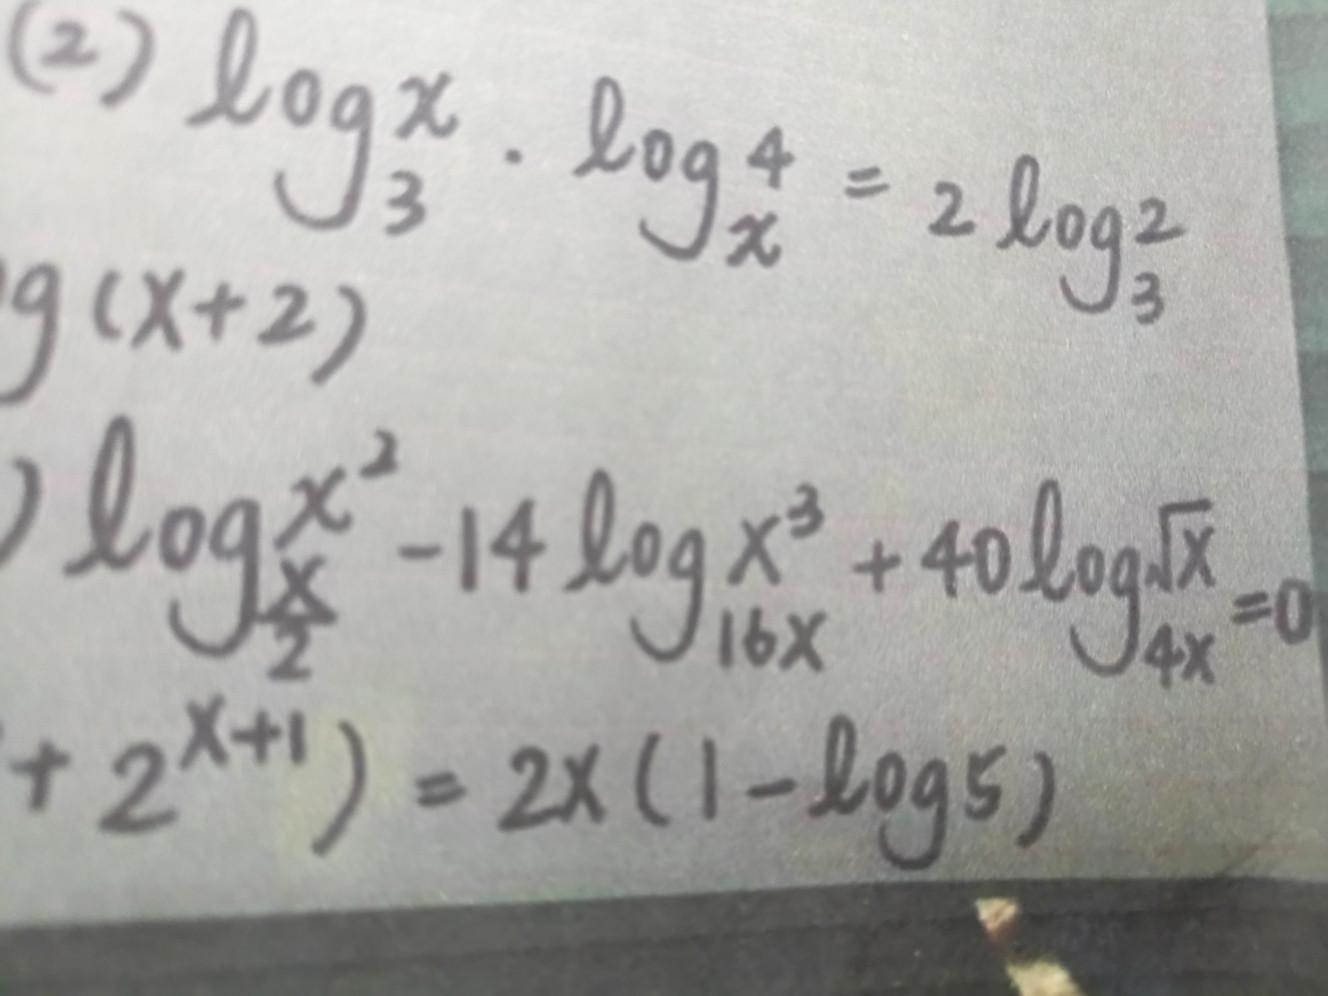 (2) log₃x · logₓ4 = 2 log₃2
g (x+2)
) log_{x/2} x² - 14 log_{16x} x³ + 40 log_{4x} √x = 0
+ 2^{x+1}) = 2x (1 - log 5)